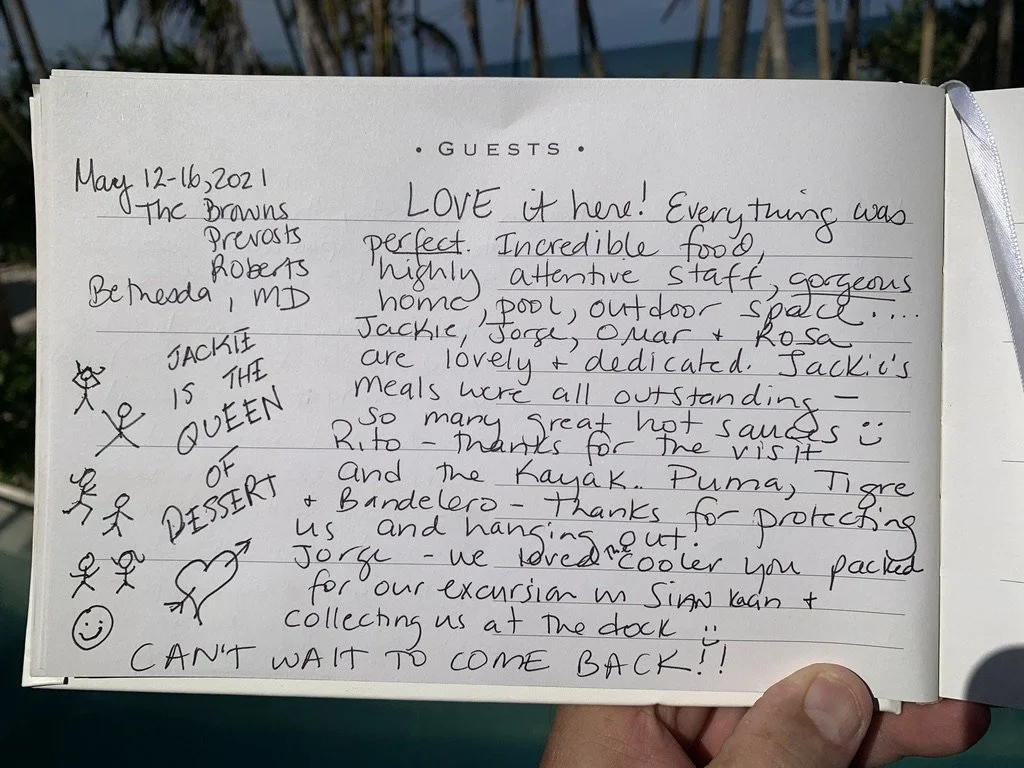 • GUESTS •
May 12-16, 2021
The Browns
Prevosts
Roberts
Bethesda, MD
JACKIE
IS THE
QUEEN
OF
DESSERT
LOVE it here! Everything was
perfect. Incredible food,
highly attentive staff, gorgeous
home, pool, outdoor space....
Jackie, Jorge, Omar + Rosa
are lovely + dedicated. Jackie's
meals were all outstanding –
so many great hot sauces
Rito – thanks for the visit
and the Kayak. Puma, Tigre
+ Bandelero – thanks for protecting
us and hanging out!
Jorge – we loved the cooler you packed
for our excursion in SIAN Kaan +
collecting us at the dock
CAN'T WAIT TO COME BACK!!